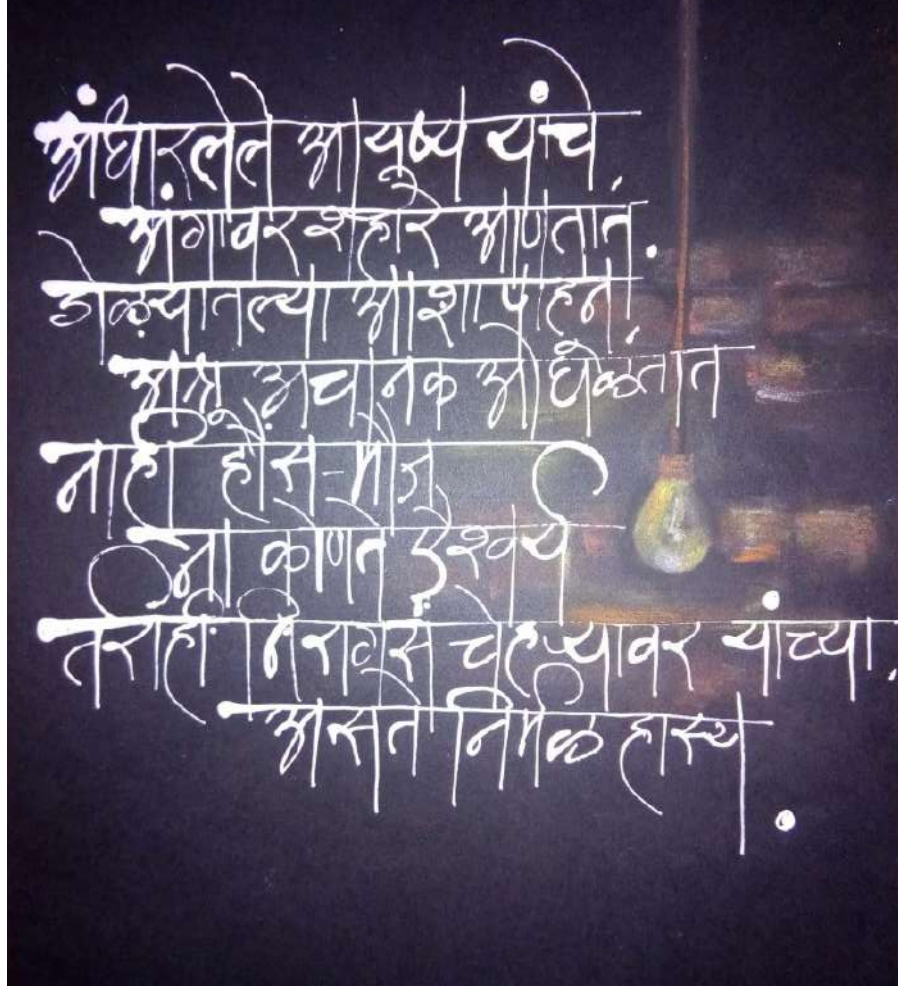 अंधारलेले आयुष्य यांचे
अंगावर शहारे आणतात.
डोळ्यातल्या आशा पाहून
अश्रू अचानक ओघळतात
नाही हौस-मौज
ना कोणते ऐश्वर्य
तरीही निरागस चेहऱ्यावर यांच्या.
असते निर्मळ हास्य.